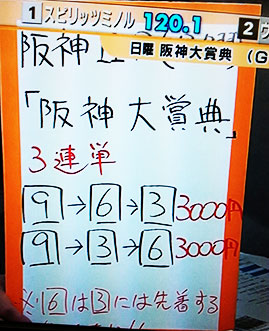 1 スピリッツミノル 120.1 2
日曜 阪神大賞典 (G
阪神
「阪神大賞典」
3連単
9→6→3 3000円
9→3→6 3000円
※6は3には先着する